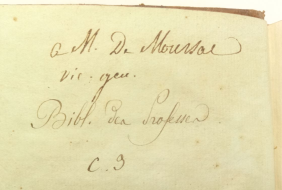 a M. De Moussac
vic. gen.
Bibl. des Professeurs
C. 3